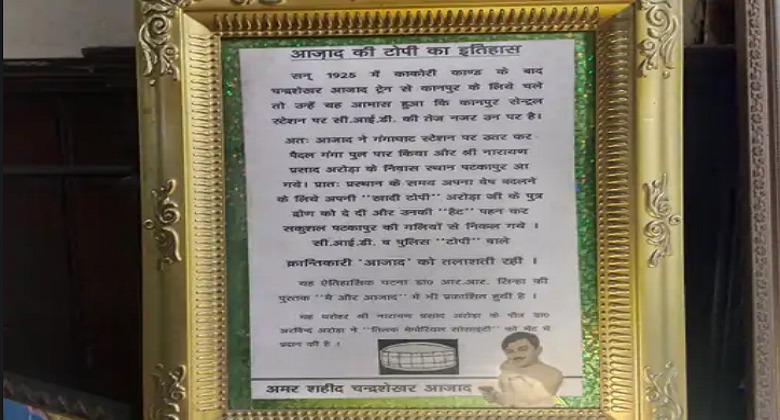 आज़ाद की टोपी का इतिहास
सन् 1925 में काकोरी काण्ड के बाद
चन्द्रशेखर आजाद ट्रेन से कानपुर के लिये चले
तो उन्हें यह आभास हुआ कि कानपुर सेन्ट्रल
स्टेशन पर सी.आई.डी. की तेज नजर उन पर है।
अतः आजाद ने गंगाघाट स्टेशन पर उतर कर
पैदल गंगा पुल पार किया और श्री नारायण
प्रसाद अरोड़ा के निवास स्थान पटकापुर आ
गये। प्रातः प्रस्थान के समय अपना वेष बदलने
के लिये अपनी "खादी टोपी" अरोड़ा जी के पुत्र
द्रोण को दे दी और उनकी "हैट" पहन कर
सकुशल पटकापुर की गलियों से निकल गये ।
सी.आई.डी. व पुलिस "टोपी" वाले
क्रान्तिकारी 'आजाद' को तलाशती रही ।
यह ऐतिहासिक घटना डा० आर.आर. सिन्हा की
पुस्तक "मैं और आजाद" में भी प्रकाशित हुयी है ।
यह धरोहर श्री नारायण प्रसाद अरोड़ा के पौत्र डा०
अरविन्द अरोड़ा ने "तिलक मेमोरियल सोसाइटी" को भेंट में
प्रदान की है ।
अमर शहीद चन्द्रशेखर आजाद